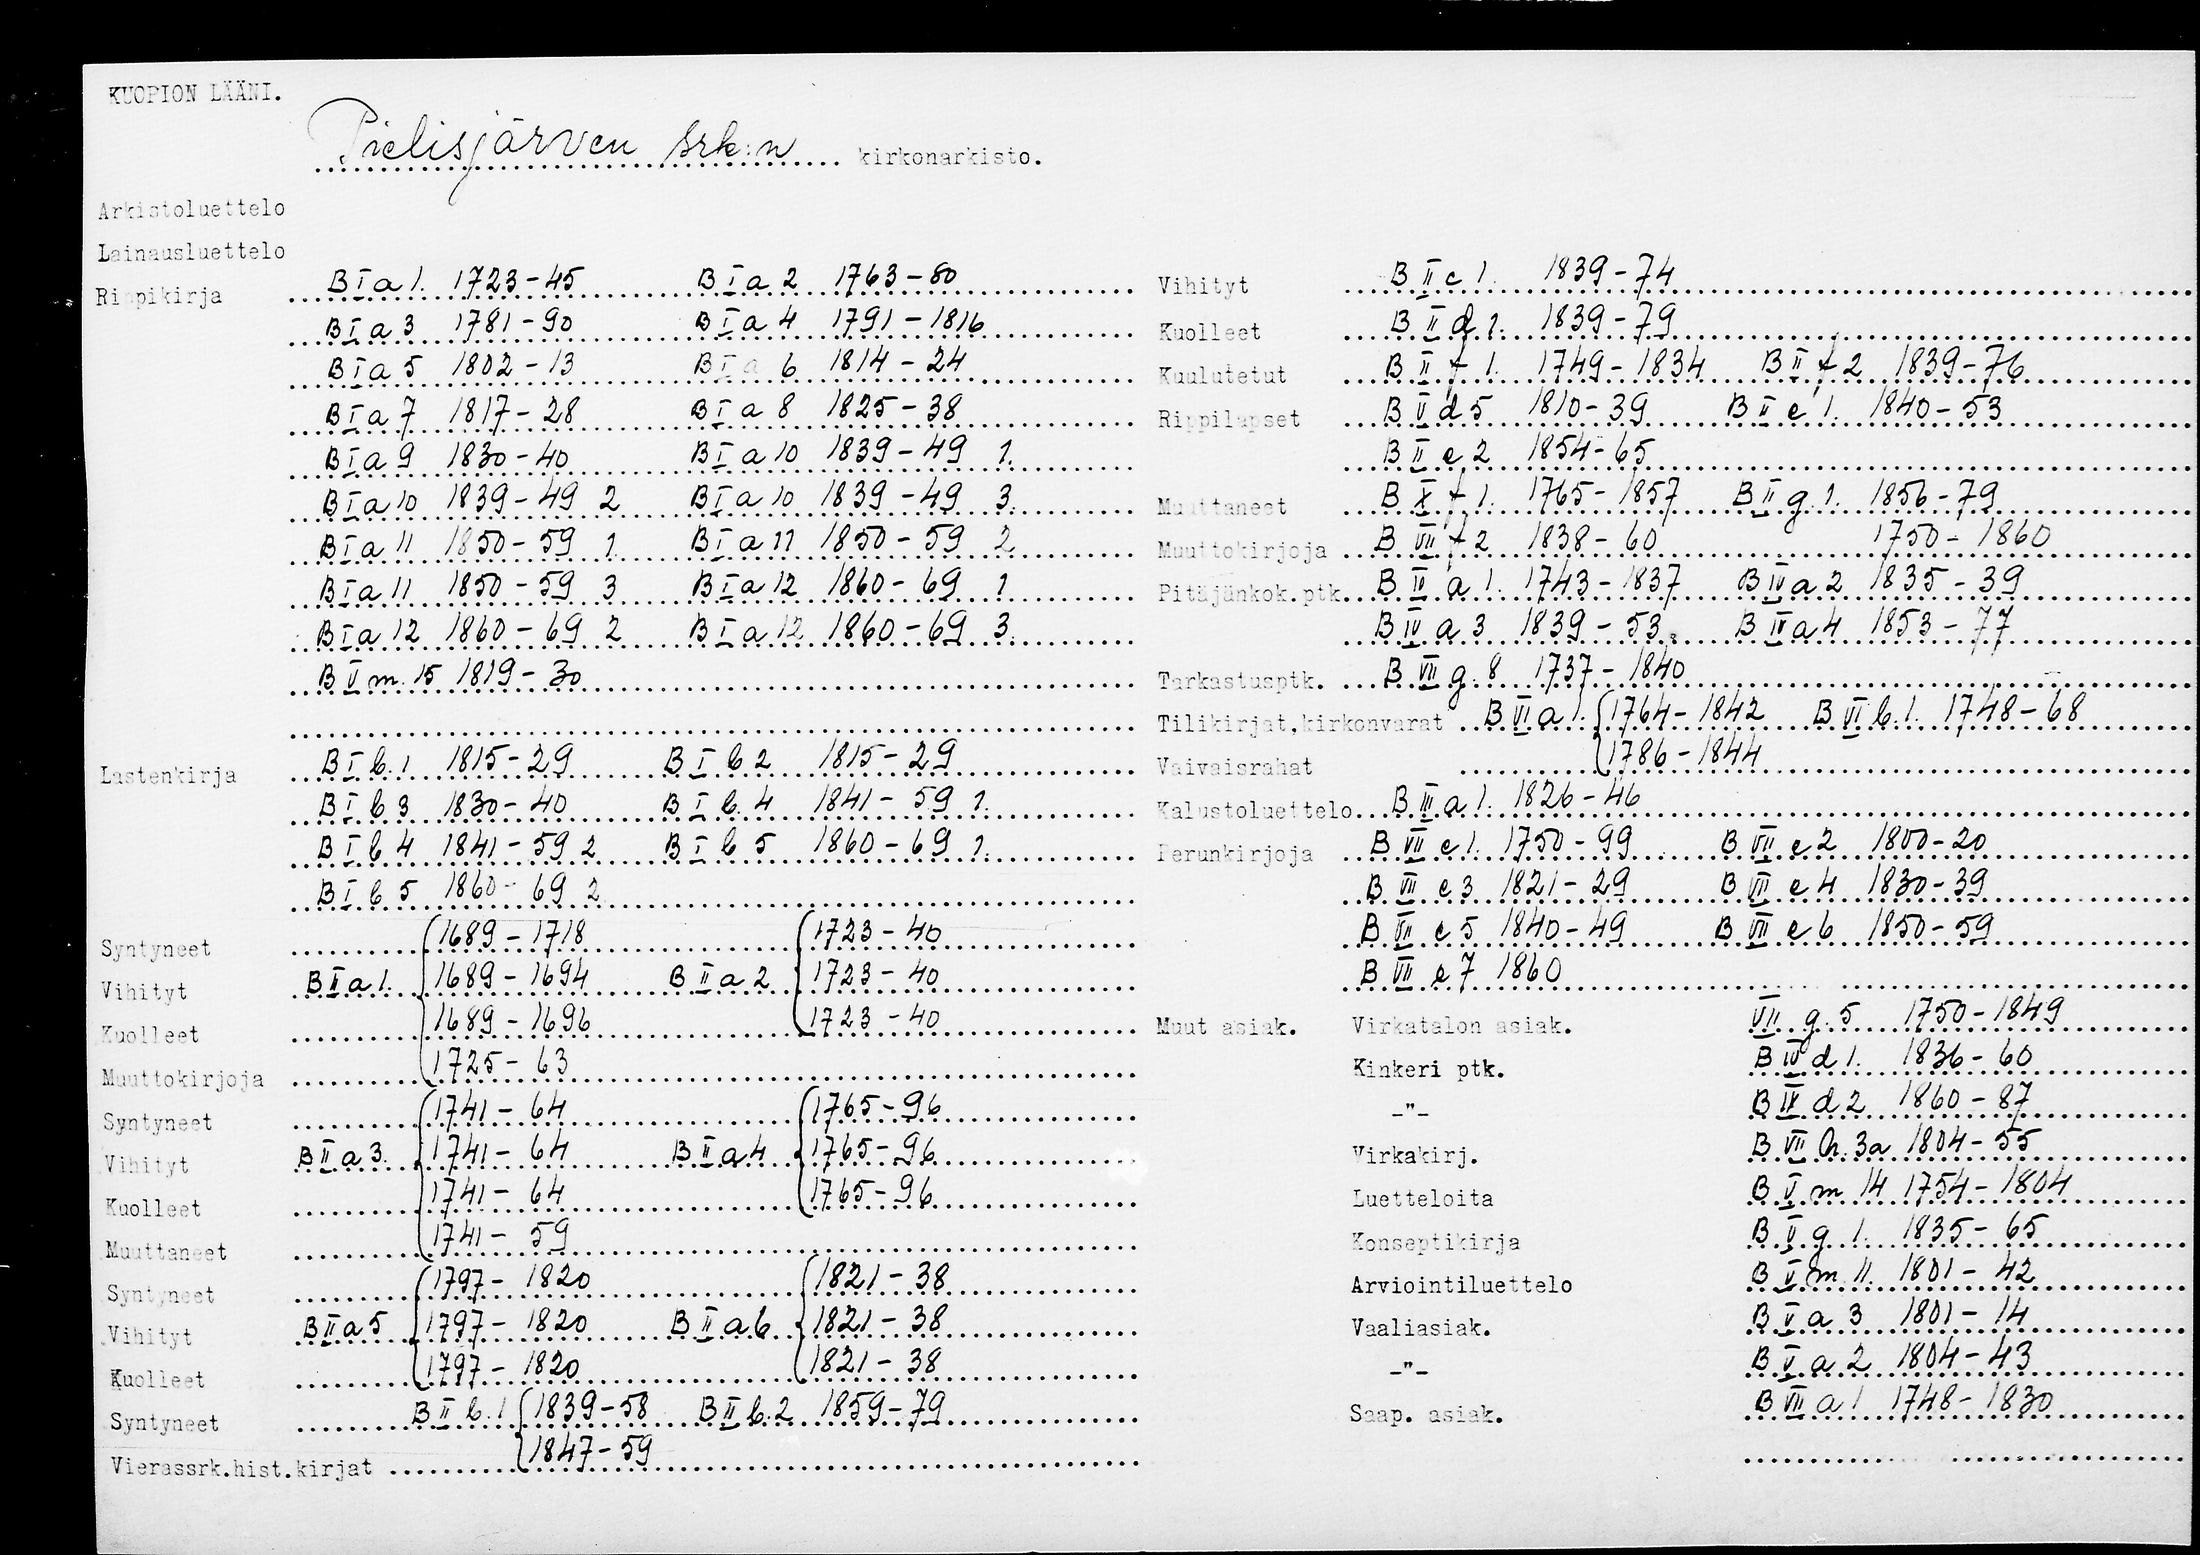 KUOPION LÄÄNI.
Pielisjärven srk:n kirkonarkisto.
Arkistoluettelo
Lainausluettelo
Rippikirja B I a 1. 1723-45 B I a 2 1763-80
B I a 3 1781-90 B I a 4 1791-1816
B I a 5 1802-13 B I a 6 1814-24
B I a 7 1817-28 B I a 8 1825-38
B I a 9 1830-40 B I a 10 1839-49 1.
B I a 10 1839-49 2 B I a 10 1839-49 3.
B I a 11 1850-59 1. B I a 11 1850-59 2
B I a 11 1850-59 3 B I a 12 1860-69 1.
B I a 12 1860-69 2 B I a 12 1860-69 3.
B V m. 15 1819-30
Lastenkirja B I b. 1 1815-29 B I b 2 1815-29
B I b 3 1830-40 B I b. 4 1841-59 1.
B I b 4 1841-59 2 B I b 5 1860-69 1.
B I b 5 1860-69 2
Syntyneet 1689-1718 1723-40
Vihityt B II a 1. 1689-1694 B II a 2 1723-40
Kuolleet 1689-1696 1723-40
Muuttokirjoja 1725-63
Syntyneet 1741-64 1765-96
Vihityt B II a 3. 1741-64 B II a 4 1765-96
Kuolleet 1741-64 1765-96
Muuttaneet 1741-59
Syntyneet 1797-1820 1821-38
Vihityt B II a 5 1797-1820 B II a 6 1821-38
Kuolleet 1797-1820 1821-38
Syntyneet B II b. 1 1839-58 B II b. 2 1859-79
Vierassrk.hist.kirjat 1847-59
Vihityt B II c 1. 1839-74
Kuolleet B II d 1. 1839-79
Kuulutetut B II f 1. 1749-1834 B II f 2 1839-76
Rippilapset B V d 5 1810-39 B II e 1. 1840-53
B II e 2 1854-65
Muuttaneet B X f 1. 1765-1857 B II g. 1. 1856-79
Muuttokirjoja B VII f 2 1838-60 1750-1860
Pitäjänkok.ptk. B IV a 1. 1743-1837 B IV a 2 1835-39
B IV a 3 1839-53. B IV a 4 1853-77
Tarkastusptk. B VII g. 8 1737-1840
Tilikirjat,kirkonvarat B VI a 1. 1764-1842 B VI b. 1. 1748-68
Vaivaisrahat 1786-1844
Kalustoluettelo B III a 1. 1826-46
Perunkirjoja B VII e 1. 1750-99 B VII e 2 1800-20
B VII e 3 1821-29 B VII e 4 1830-39
B VII e 5 1840-49 B VII e 6 1850-59
B VII e 7 1860
Muut asiak. Virkatalon asiak. VII g. 5 1750-1849
Kinkeri ptk. B IV d 1. 1836-60
-"- B IV d 2 1860-87
Virkakirj. B VII h. 3a 1804-55
Luetteloita B V m 14 1754-1804
Konseptikirja B V g 1. 1835-65
Arviointiluettelo B V m 11. 1801-42
Vaaliasiak. B V a 3 1801-14
-"- B V a 2 1804-43
Saap. asiak. B VII a 1 1748-1830